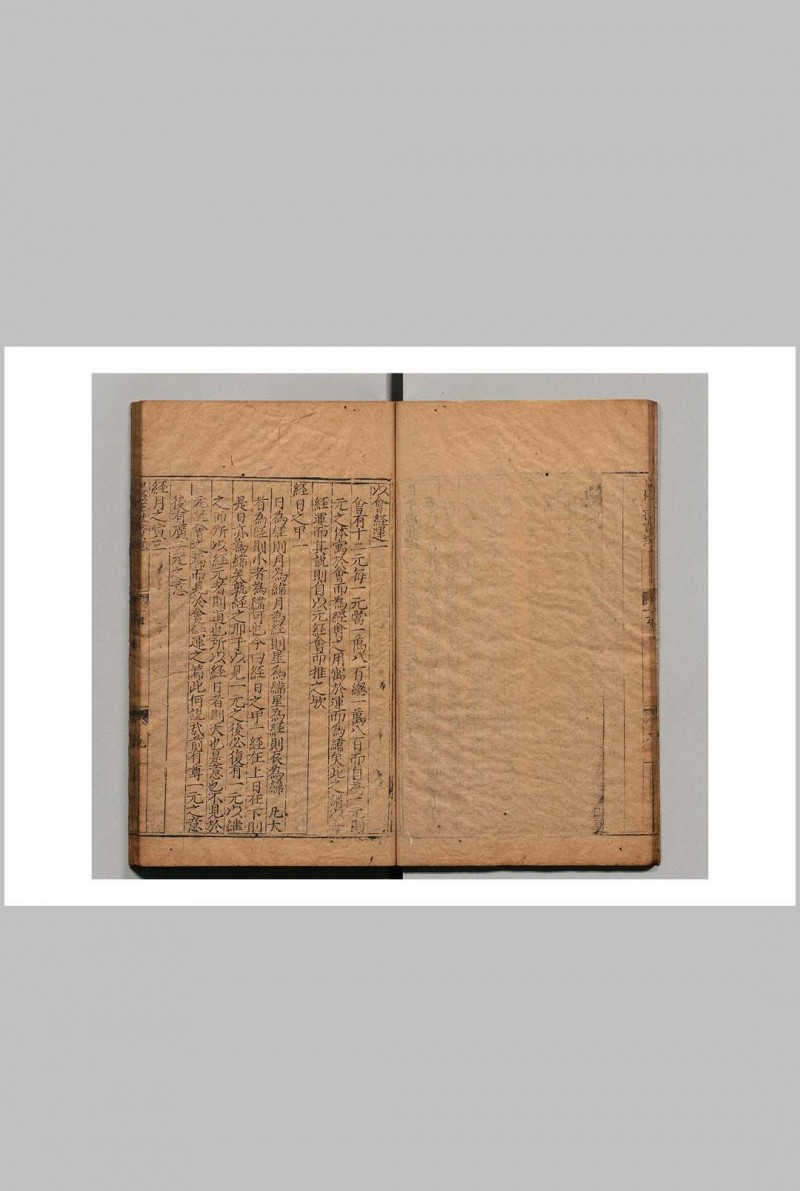 以會經運一
會有十二元每一元當一萬八百總一萬八百而自為一元則
元之体寓於會而為經會之用寓於運而為緯矣此之謂以
經運而其說則自以元經會而推之歟
經日之甲一
日為經則月為緯月為經則星為緯星為經則辰為緯凡大
者為經則小者為緯可也今曰經日之甲一經在上日在下則
是日亦為緯矣孰經之耶于以見一元之後必復有一元以繼
之而所以經元者則道也所以經日者則天也是意也不見於
元經會之篇而見於會經運之篇此何說哉前有專一元之意
後有廣一元之意
經月之